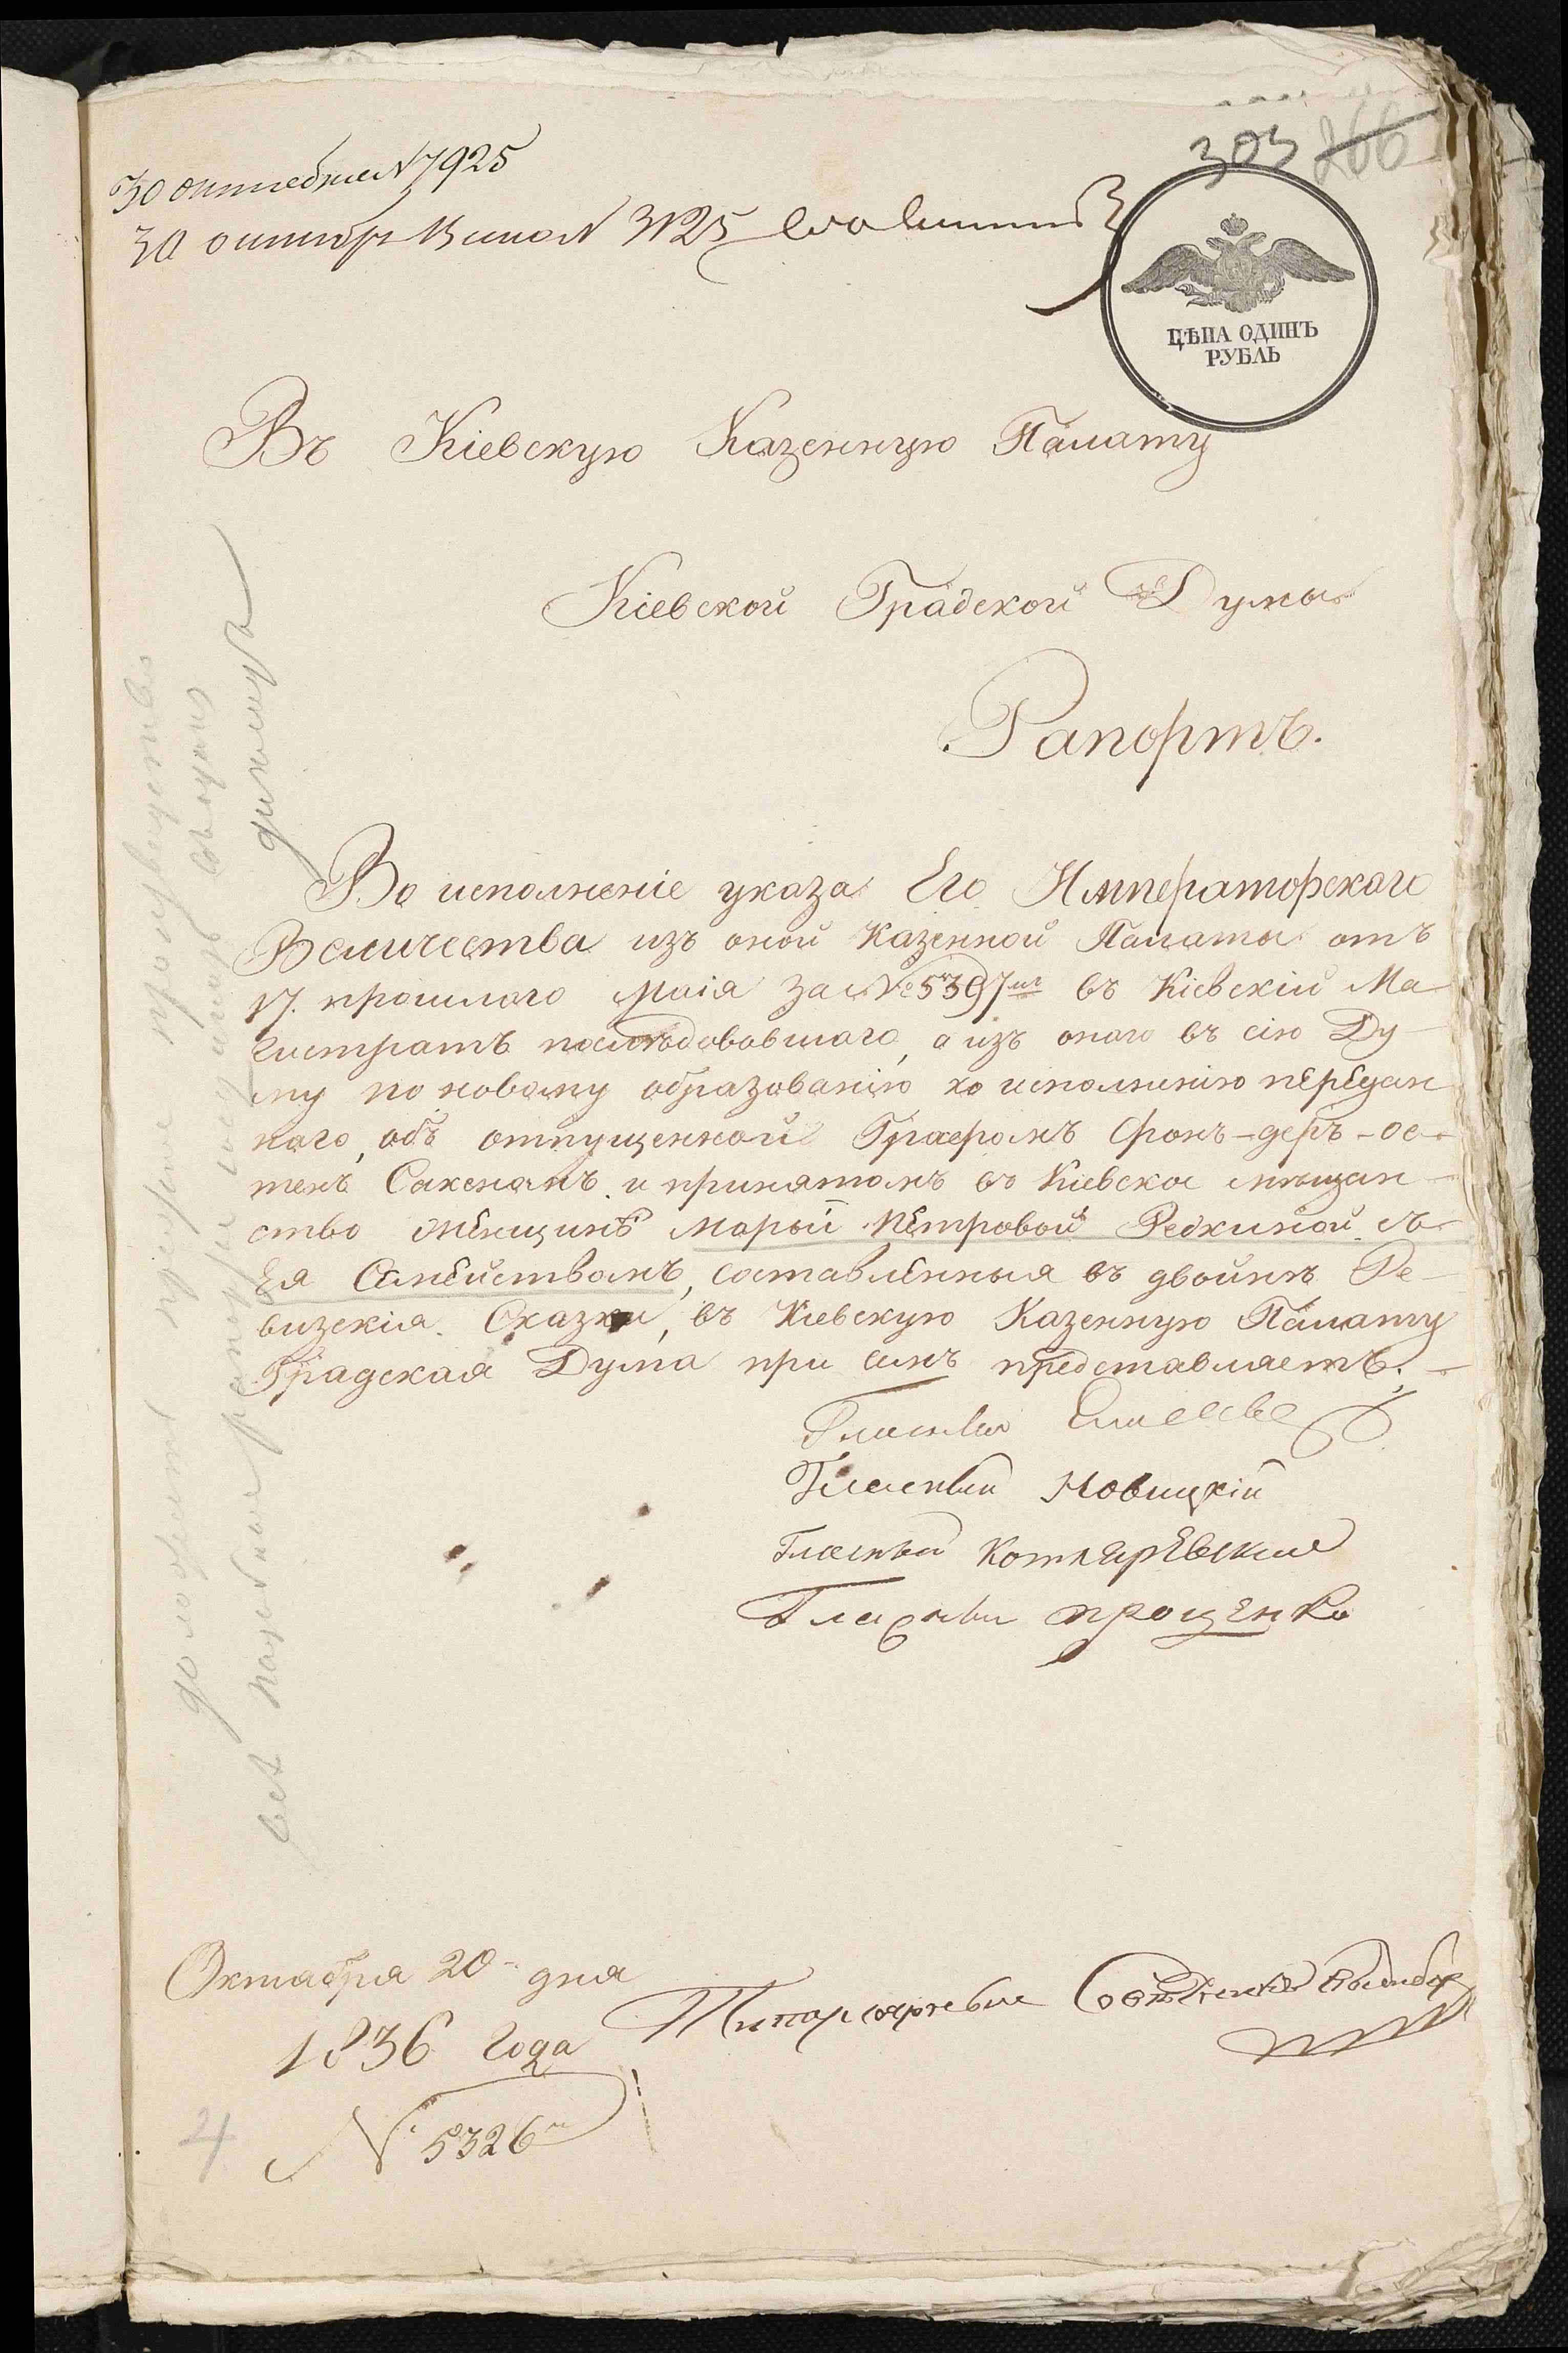 303 266
30 октября N 7925
30 октября N 3125
ЦѢНА ОДИНЪ
РУБЛЬ
Въ Кіевскую Казенную Палату
Кіевской Градской Думы
Рапортъ.
Во исполненіе указа Его Императорскаго
Величества изъ оной Казенной Палаты отъ
17. прошлаго Маія за № 5397мъ въ Кіевскій Ма-
гистратъ послѣдовавшаго, а изъ онаго въ сію Ду-
му по новому образованію ко исполненію передан
наго, объ отпущенной Графомъ Фонъ-деръ-Ос-
тенъ Сакеномъ и принятомъ въ Кіевское мѣщан-
ство женщинѣ Марьи Петровой Редкиной съ
Ея Семействомъ, составленныя въ двойнѣ Ре-
визскія Сказки, въ Кіевскую Казенную Палату
Градская Дума при семъ представляетъ.
Гласный Елисеевъ
Гласный Новицкій
Гласный Котляревскій
Гласный Проценко
Октября 20 дня
1836 года
N 5326
4